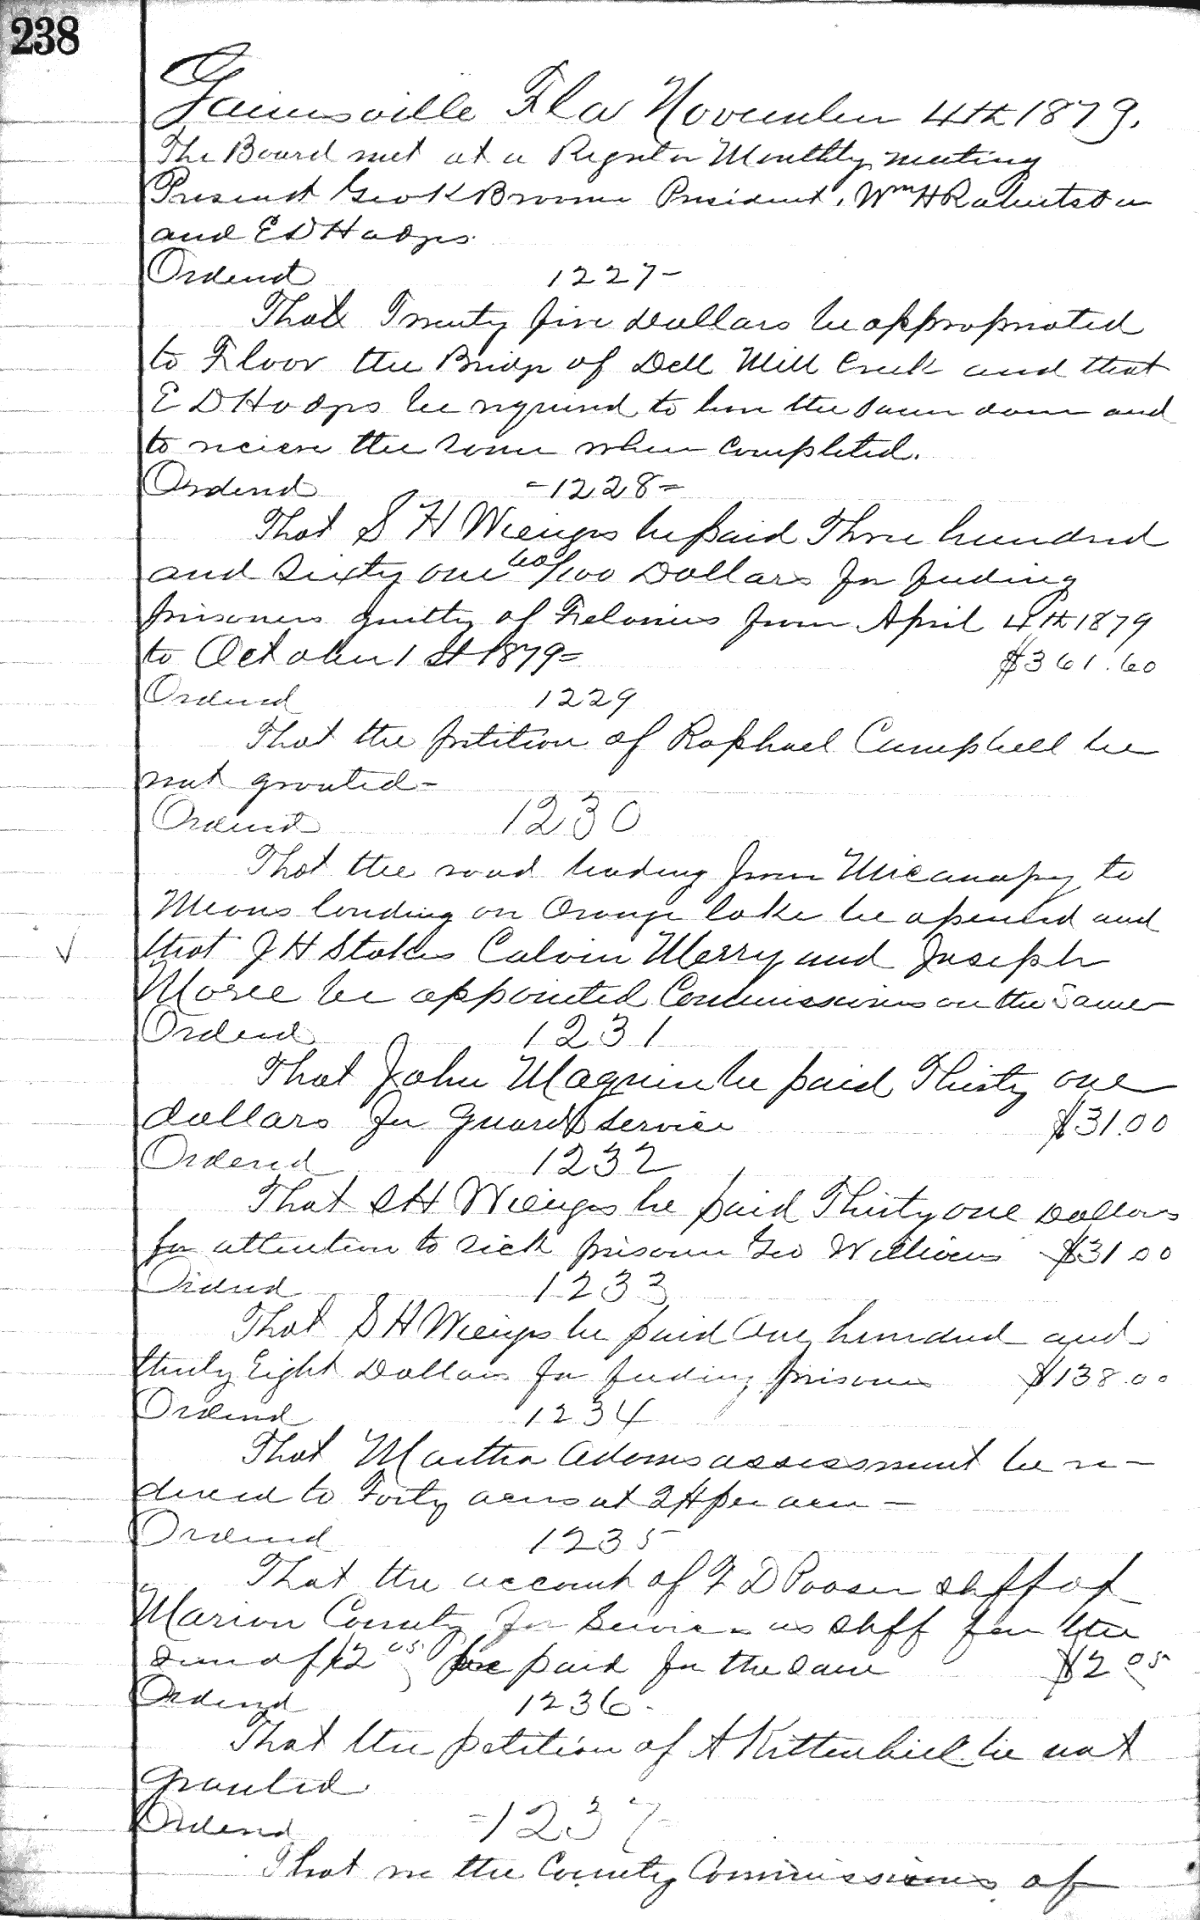 238
Gainesville Fla November 4th 1879.
The Board met at a Regular Monthly meeting
Present Geo K Broome President, Wm H Robertson
and E D Hodges
Ordered 1227-
That Twenty five Dollars be appropriated
to Floor the Bridge of Dell Mill Creek and that
E D Hodges be required to have the same done and
to recieve the same when completed.
Ordered -1228-
That S H Wienges be paid Three hundred
and Sixty one 60/100 Dollars for feeding
prisoners guilty of Felonies from April 4th 1879
to October 1st 1879- $361.60
Ordered 1229
That the petition of Raphael Campbell be
not granted-
Ordered 1230
That the road leading from Micanopy to
Means landing on Orange lake be opened and
√ that J H Stokes Calvin Merry and Joseph
be appointed Commissioners on the same
Ordered 1231
That John be paid Thirty one
dollars for guard service $31.00
Ordered 1232
That S H Wienges be paid Thirty one Dollars
for attention to sick prisoner Geo Williams $31 00
Ordered 1233
That S H Wienges be paid One hundred and
thirty Eight Dollars for feeding prisoners $138.00
Ordered 1234
That Martha Adams assessment be re-
duced to Forty acres at 2$ per acre -
Ordered 1235
That the account of F D Pooser shff of
Marion County for Services as shff for the
sum of $2 05 be paid for the same $2 05
Ordered 1236-
That the petition of A be not
granted.
Ordered -1237
That we the County Commissioners of